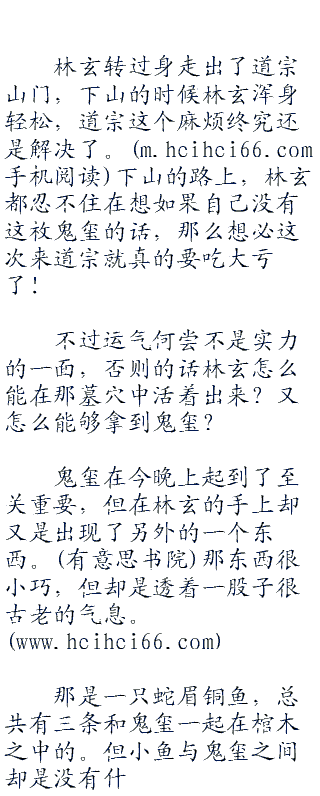 林玄转过身走出了道宗
山门，下山的时候林玄浑身
轻松，道宗这个麻烦终究还
是解决了。(m.hcihci66.com
手机阅读)下山的路上，林玄
都忍不住在想如果自己没有
这枚鬼玺的话，那么想必这
次来道宗就真的要吃大亏
了！
不过运气何尝不是实力
的一面，否则的话林玄怎么
能在那墓穴中活着出来？又
怎么能够拿到鬼玺？
鬼玺在今晚上起到了至
关重要，但在林玄的手上却
又是出现了另外的一个东
西。(有意思书院)那东西很
小巧，但却是透着一股子很
古老的气息。
(www.hcihci66.com)
那是一只蛇眉铜鱼，总
共有三条和鬼玺一起在棺木
之中的。但小鱼与鬼玺之间
却是没有什